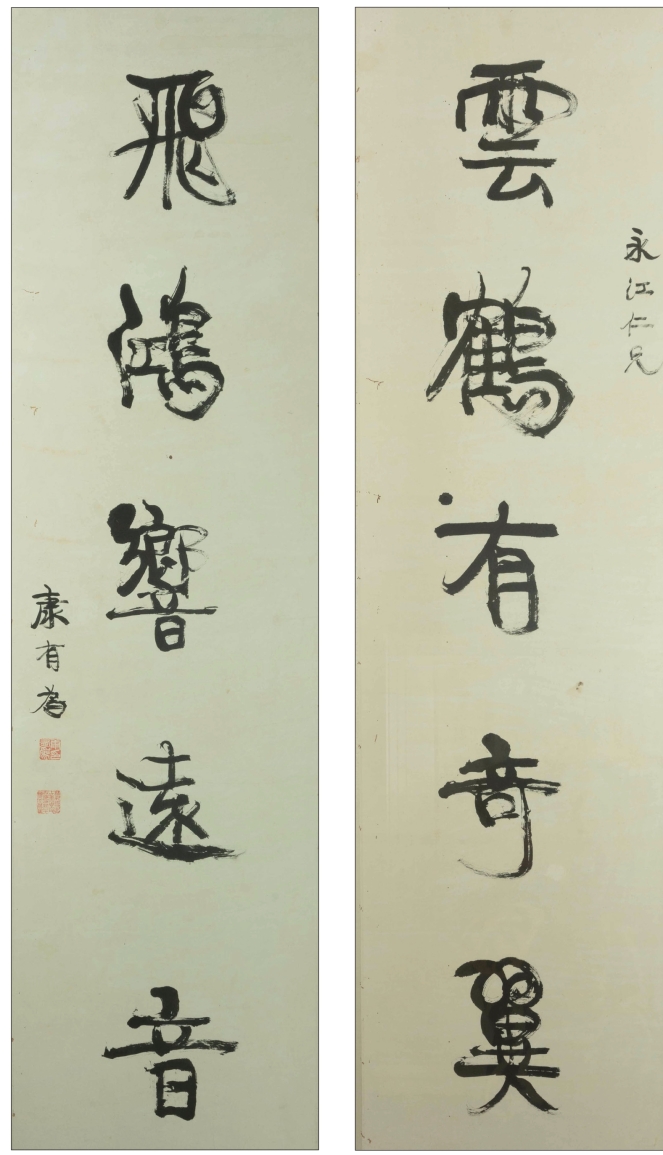 永江仁兄
雲鶴有奇翼
飛鴻響遠音
康有為